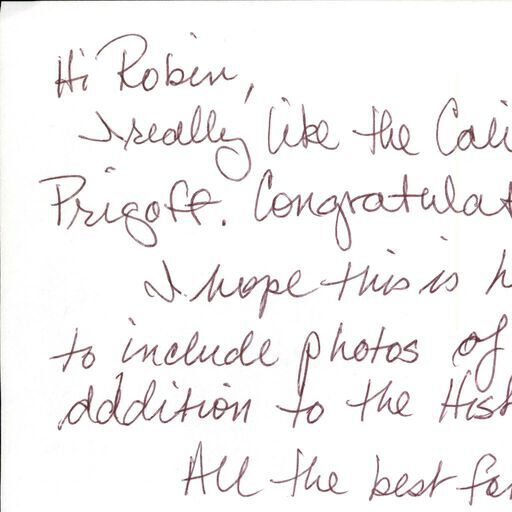 Hi Robin,
I really like the Cali
Prigoff. Congratulat
I hope this is h
to include photos of
addition to the Hist
All the best for